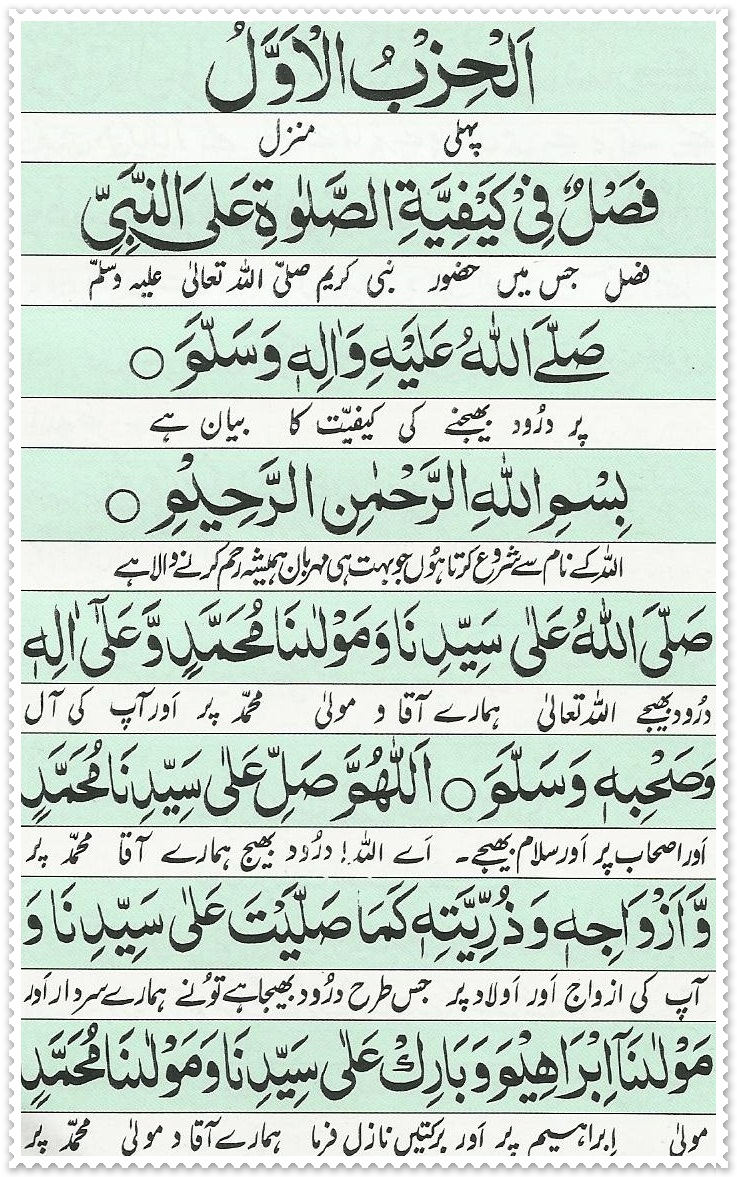 اَلْحِزْبُ الْاَوَّلُ
پہلی منزل
فَصْلٌ فِیْ كَیْفِیَّةِ الصَّلٰوةِ عَلَی النَّبِیِّ
فصل جس میں حضور نبی کریم صلّی اللہ تعالیٰ علیہ وسلّم
صَلَّے اللهُ عَلَیْهِ وَاٰلِهٖ وَسَلَّمَ ○
پر درُود بھیجنے کی کیفیّت کا بیان ہے
بِسْمِ اللهِ الرَّحْمٰنِ الرَّحِیْمِ ○
اللہ کے نام سے شروع کرتا ہُوں جو بہت ہی مہربان ہمیشہ رحم کرنے والا ہے
صَلَّی اللهُ عَلٰی سَیِّدِنَا وَمَوْلٰنَا مُحَمَّدٍ وَّعَلٰٓی اٰلِهٖ
درُود بھیجے اللہ تعالیٰ ہمارے آقا و مولیٰ محمّد پر اَور آپ کی آل
وَصَحْبِهٖ وَسَلَّمَ ○ اَللّٰهُمَّ صَلِّ عَلٰی سَیِّدِنَا مُحَمَّدٍ
اَور اصحاب پر اَور سلام بھیجے۔ اَے اللہ! درُود بھیج ہمارے آقا محمّد پر
وَّاَزْوَاجِهٖ وَذُرِّیَّتِهٖ كَمَا صَلَّیْتَ عَلٰی سَیِّدِنَا وَ
آپ کی ازواج اَور اَولاد پر جس طرح درُود بھیجا ہے تُو نے ہمارے سردار اَور
مَوْلٰنَآ اِبْرَاهِیْمَ وَبَارِكْ عَلٰی سَیِّدِنَا وَمَوْلٰنَا مُحَمَّدٍ
مولیٰ اِبراہیم پر اَور برکتیں نازل فرما ہمارے آقا و مولیٰ محمّد پر